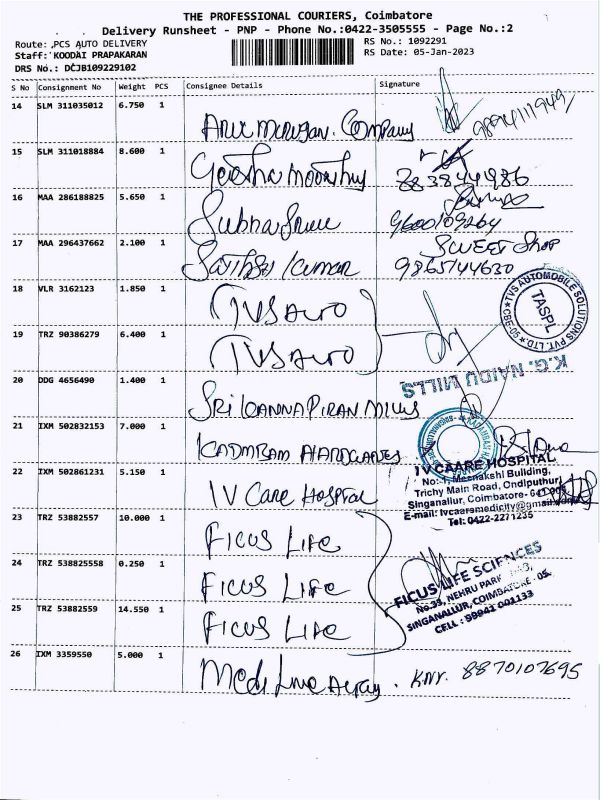 THE PROFESSIONAL COURIERS, Coimbatore
Delivery Runsheet - PNP - Phone No.:0422-3505555 - Page No.:2
Route: ,PCS AUTO DELIVERY
RS No.: 1092291
Staff: KOODAI PRAPAKARAN
RS Date: 05-Jan-2023
DRS No.: DCJB109229102
S No Consignment No Weight PCS Consignee Details Signature
14 SLM 311035012 6.750 1
Company
15 SLM 311018884 8.600 1
8838944986
16 MAA 286188825 5.650 1
9600109264
17 MAA 296437662 2.100 1 SWEET Shop
Kumar 9865144630
18 VLR 3162123 1.850 1
TVS Auto
TVS AUTOMOBILE SOLUTIONS PVT. LTD. CBE-05
TASPL
19 TRZ 90386279 6.400 1
TVS Auto
K.G. NAIDU MILLS
20 DDG 4656490 1.400 1
SRI KANNAPIRAN MILLS
21 IXM 502832153 7.000 1
22 IXM 502861231 5.150 1
IV Care Hospital
IV CAARE HOSPITAL
No:-1, Meenakshi Building,
Trichy Main Road, Ondiputhur,
Singanallur, Coimbatore-
E-mail: ivcaaremedicity@gmail.com
Tel: 0422-2271235
23 TRZ 53882557 10.000 1
FICUS LIFE
24 TRZ 538825558 0.250 1
FICUS LIFE
FICUS LIFE SCIENCES
No.33, NEHRU PARK
SINGANALLUR, COIMBATORE - 05.
CELL : 99941 001133
25 TRZ 53882559 14.550 1
FICUS LIFE
26 IXM 3359550 5.000 1
8870107695